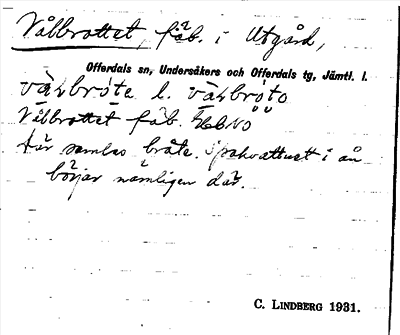 Vålbrottet, fäb. i Utgård,
Offerdals sn, Undersåkers och Offerdals tg, Jämtl. l.
vàḷbròte l. vàḷbroto
Vålbrottet fäb.
Här samlas bråte. Spakvattnet i ån
börjar nämligen där.
C. LINDBERG 1931.